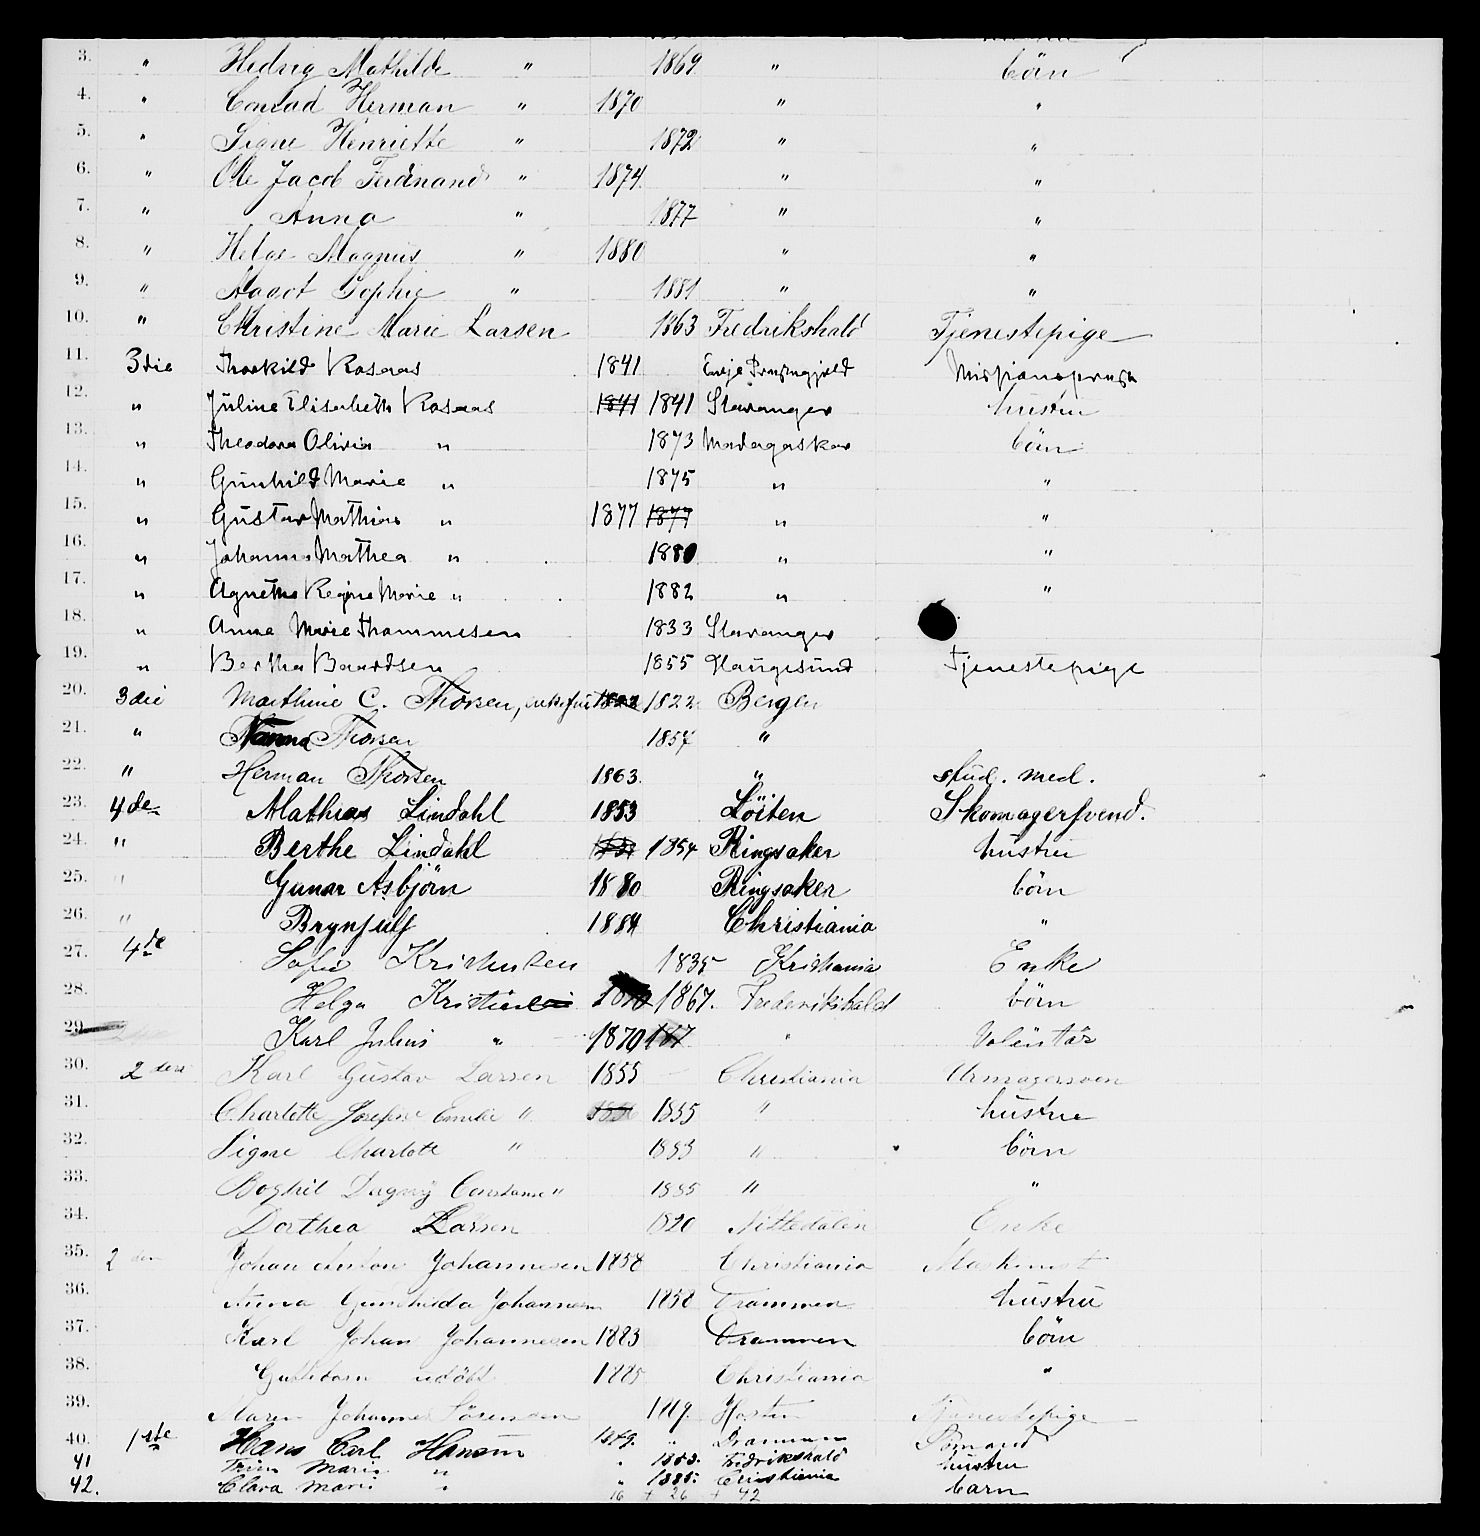 3. " Hedvig Mathilde " 1869 " börn
4. " Conrad Herman " 1870 " "
5. " Signe Henriette " 1872 " "
6. " Ole Jacob Ferdinand " 1874 " "
7. " Anna " 1877 " "
8. " Helge Magnus " 1880 " "
9. " Aagot Sophie " 1881 " "
10. " Christine Marie Larsen 1863 Fredrikshald Tjenestepige
11. 3die Thorkild Rosaas 1841
12. " Juline Elisabeth Rosaas 1841 1841 Stavanger hustru
13. " Theodora Olivia " 1873 Madagaskar börn
14. " Gunhild Marie " 1875 " "
15. " Gustav Mathias " 1877 1877 " "
16. " Johanna Mathea " 1880 " "
17. " Agnethe Regine Marie " 1882 " "
18. " Anna Marie Thommesen 1833 Stavanger
19. " Bertha Baardsen 1855 Haugesund Tjenestepige
20. 3die Marthine C. Thorsen, enkefru 1822 1822 Bergen
21. " Nanna Thorsen 1857 "
22. " Herman Thorsen 1863. " stud. med.
23. 4de Mathias Lindahl 1853 Löiten Skomagersvend.
24. " Berthe Lindahl 1854 Ringsaker hustru
25. " Gunar Asbjörn 1880 Ringsaker börn
26. " Brynjulf 1884 Christiania "
27. 4de Sofie Kristensen 1835 Kristiania Enke
28. Helga 1867. Frederikshald börn
29. Karl Julius " 1870 187 " Volentär
30. 2den Karl Gustav Larsen 1855 Christiania Urmagersven
31. Charlotte Josefine Emilie " 1855 " hustru
32. Signe Charlotte " 1883 " börn
33. Boghil Dagny Constanse " 1885 " "
34. Dorthea Larsen 1820 Nittedalen Enke
35. 2den Johan Anton Johannesen 1858 Christiania Maskinist
36. Anna Gunhilda Johannesen 1858 Drammen hustru
37. Karl Johan Johannesen 1883 Drammen börn
38. Guttebarn udöbt 1885 Christiania "
39. Maren Johanne Tjenestepige
40. 1ste Hans Carl Hansen 1849. " Drammen
41 Marie " " 1853. Fredrikshald hustru
42. Clara Marie " " 1885. Cristiania barn
16 + 26 + 42